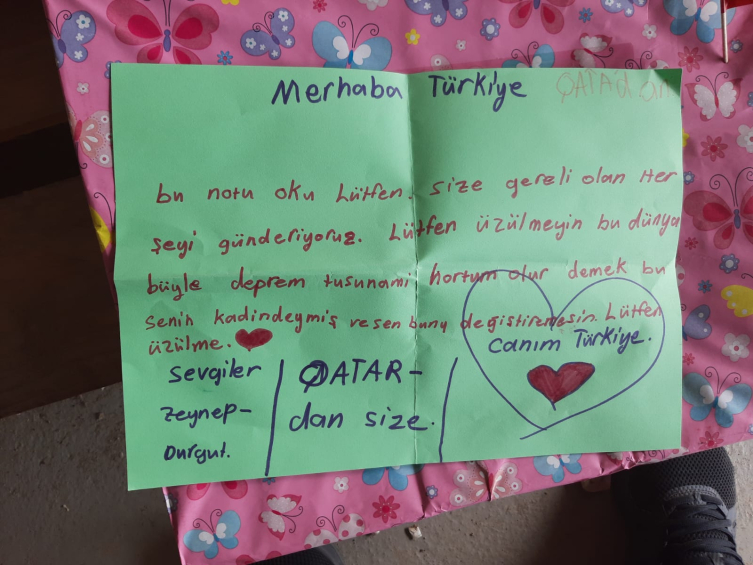 Merhaba Türkiye QATAdan
bu notu oku Lütfen. size gereli olan Her
şeyi günderiyoruz. Lütfen üzülmeyin bu dünya
büyle deprem tusunami hortum olur demek bu
senin kadindeymiş ve sen bunu degistiremesin. Lütfen
üzülme.
canım Türkiye.
sevgiler
zeynep-
Durgut.
QATAR-
dan size.